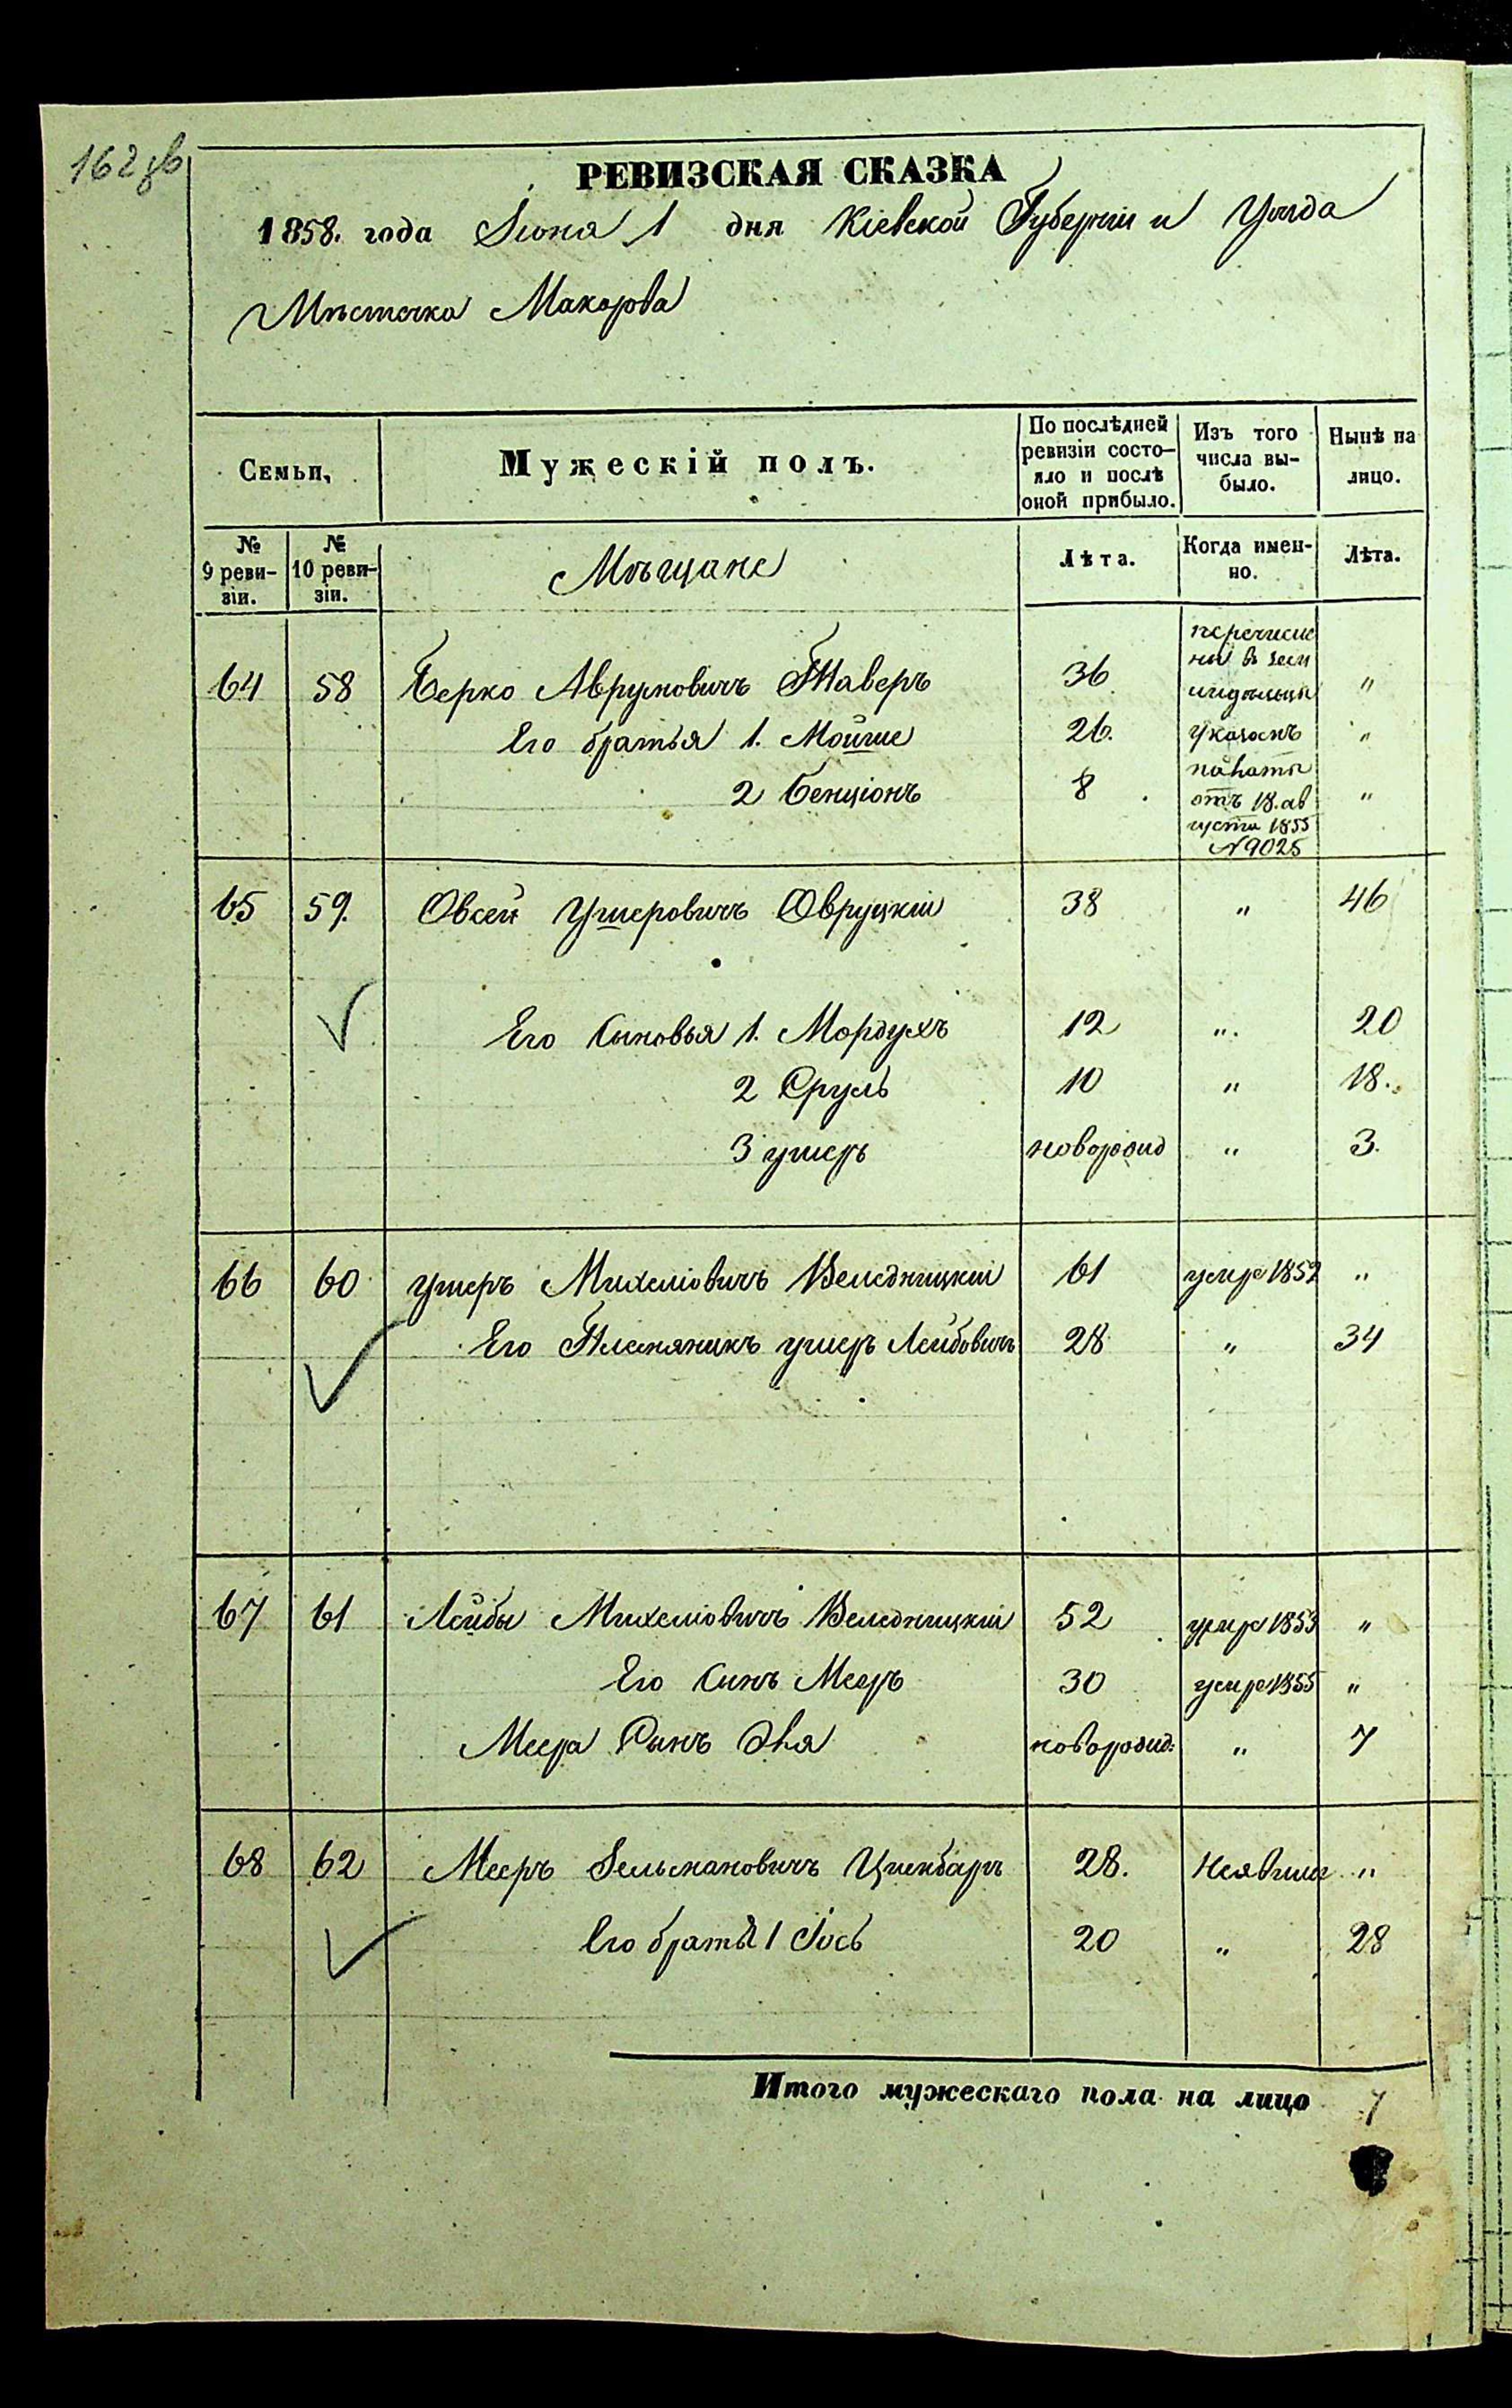 162 зв
РЕВИЗСКАЯ СКАЗКА
1858. года Іюня 1 дня Кіевской Губерніи и Уѣзда
Мѣстечка Макарова
Семьи,
Мужескій полъ.
По послѣдней ревизіи состо-
яло и послѣ
оной прибыло.
Изъ того
числа вы-
было.
Нынѣ на
лицо.
№
9 реви-
зіи.
№
10 реви-
зіи.
Мѣщане
Лѣта.
Когда имен-
но.
Лѣта.
64 58 Берко Аврумовичъ Таверъ 36 "
Его братья 1. Мойше 26. "
2 Бенціонъ 8 "
перечисле
ны в зем
ледѣльцы
указомъ
палаты
отъ 18. ав
густа 1855
N 9025
65 59. Овсей Ушеровичъ Овруцкій 38 " 46
Его Сыновья 1. Мордухъ 12 " 20
2 Сруль 10 " 18.
3 ушеръ новорожд " 3.
66 60 ушеръ Михелiовичъ Веледницкій 61 умре 1852 "
Его Племяникъ ушеръ Лейбовичъ 28 " 34
67 61 Лейбы Михелiовичъ Веледницкій 52 умре 1853 "
Его Сынъ Мееръ 30 умре 1855 "
Меера Сынъ новорожд: " 7
68 62 Мееръ Зельмановичъ 28. Неявился "
Его братья 1 Іось 20 " 28
Итого мужескаго пола на лицо 7